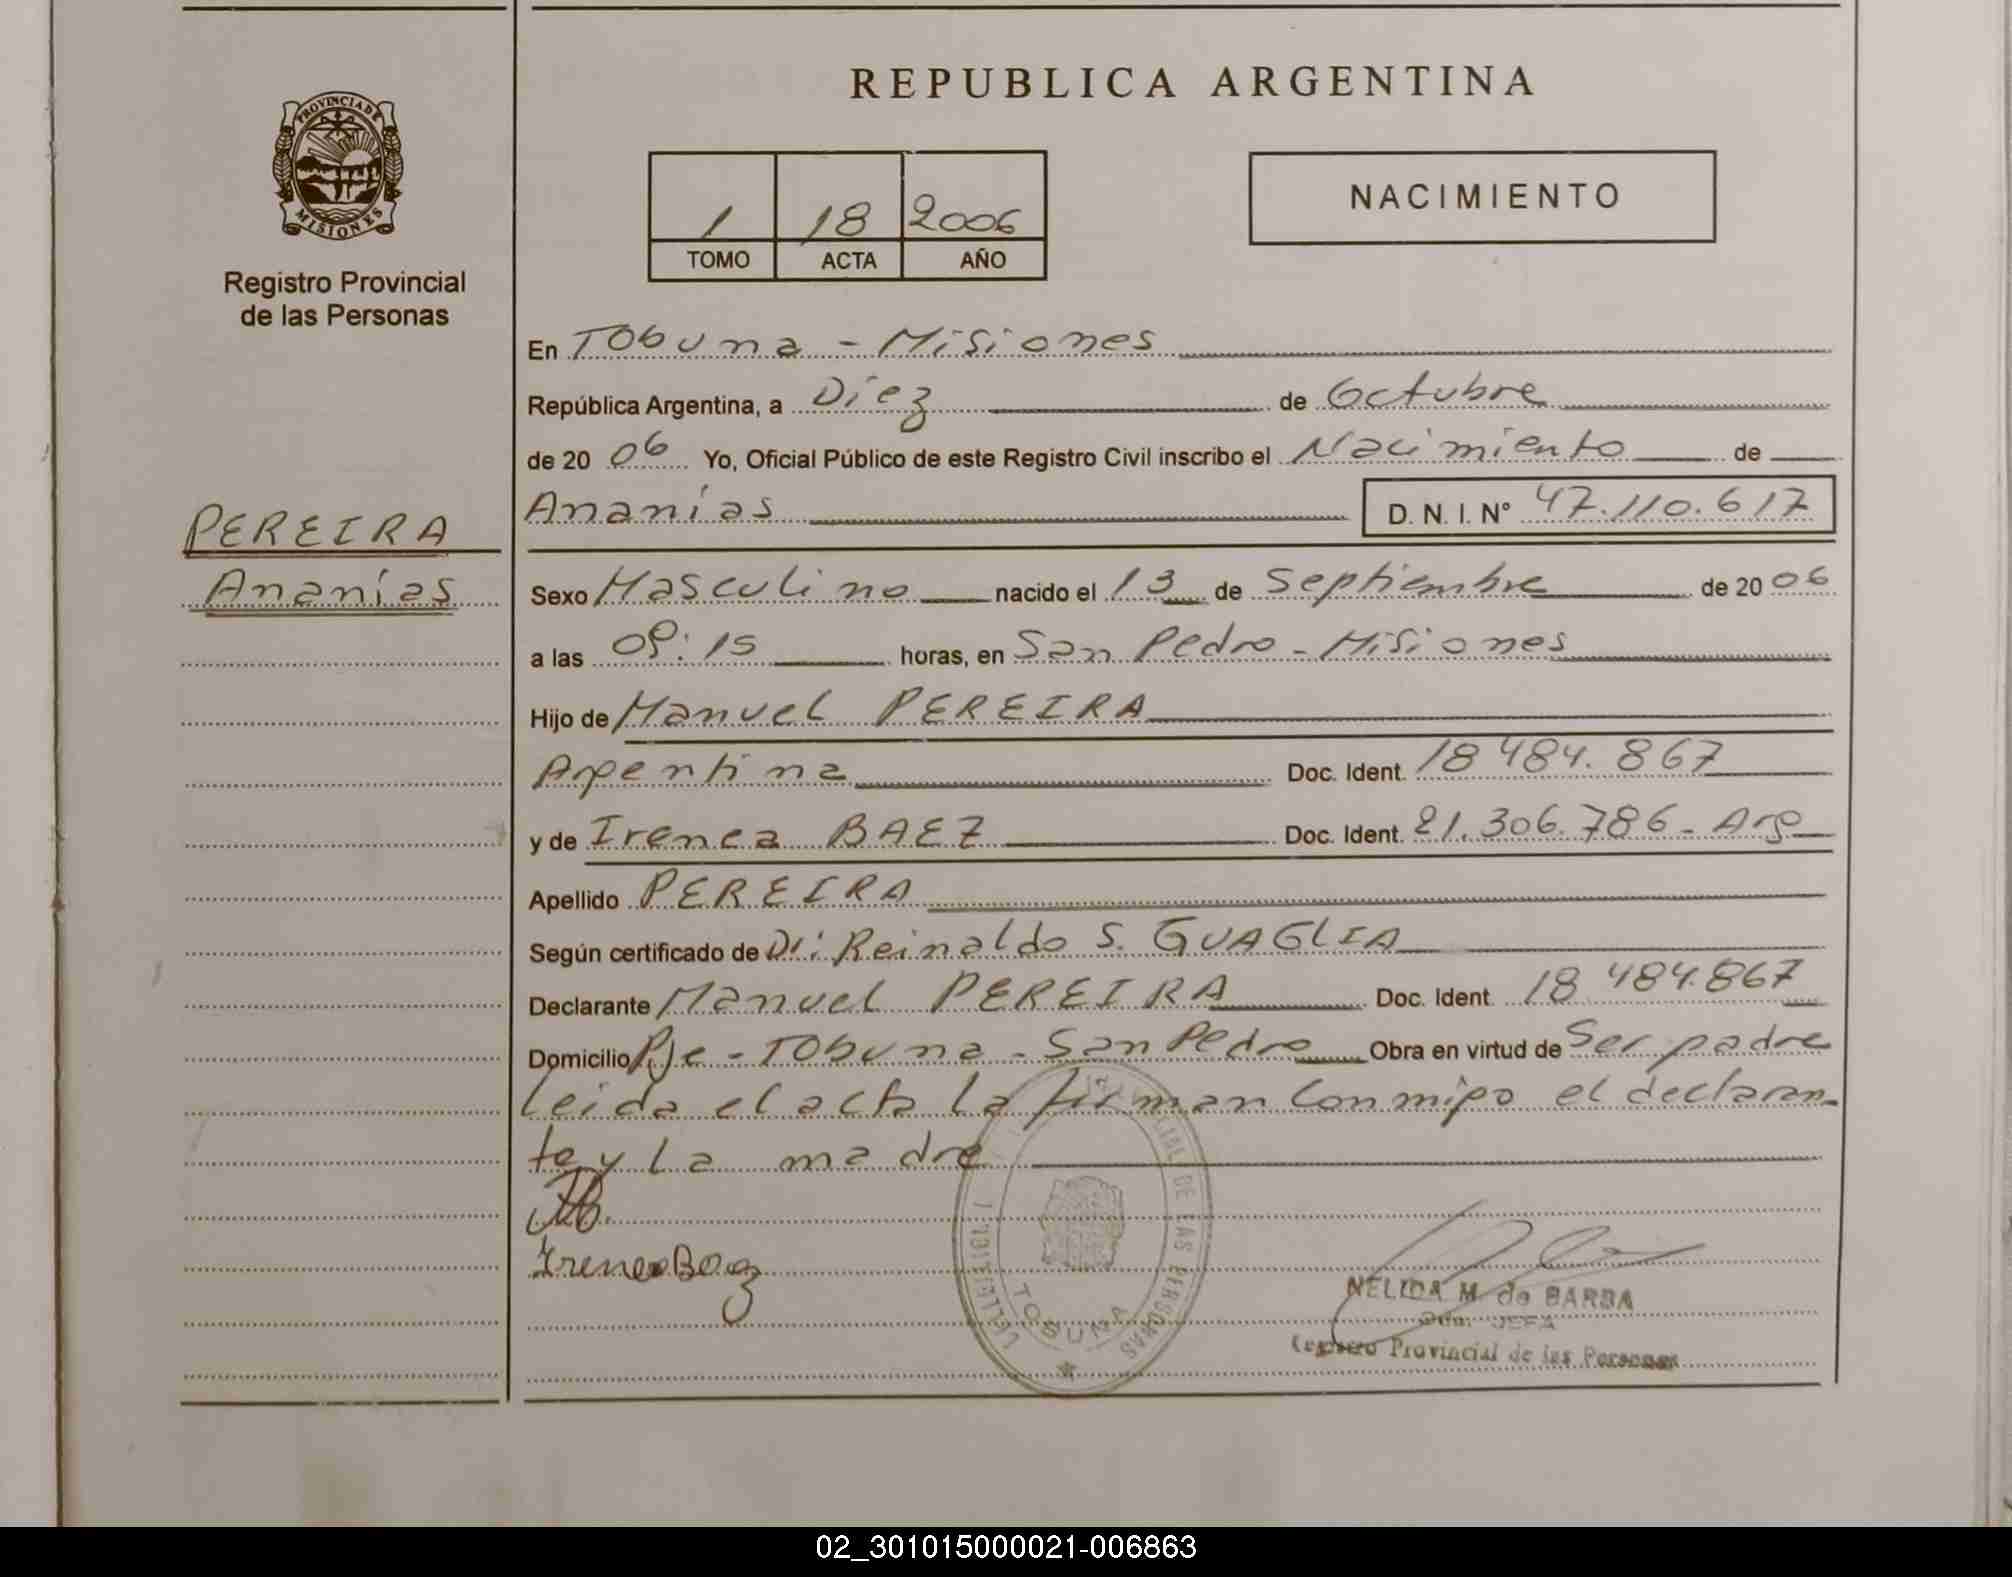 REPUBLICA ARGENTINA
PROVINCIA DE
MISIONES
Registro Provincial
de las Personas
1 18 2006
TOMO ACTA AÑO
NACIMIENTO
En Tobuna - Misiones
República Argentina, a Diez de Octubre
de 20 06 Yo, Oficial Público de este Registro Civil inscribo el Nacimiento de
Ananías D. N. I. N° 47.110.617
PEREIRA
Ananías
Sexo Masculino nacido el 13 de Septiembre de 20 06
a las 09:15 horas, en San Pedro - Misiones
Hijo de Manuel PEREIRA
Argentina Doc. Ident. 18 484.867
y de Irenea BAEZ Doc. Ident. 21.306.786 - Arg
Apellido PEREIRA
Según certificado de Dr: Reinaldo S. GUAGLIA
Declarante Manuel PEREIRA Doc. Ident. 18 484.867
Domicilio Pje - Tobuna - San Pedro Obra en virtud de Ser padre
Leida el acta la firman conmigo el declaran-
te y la madre
Irenea Baez
DE LAS PERSONAS
TOBUNA
NELIDA M. de BARBA
JEFA
Registro Provincial de las Personas
02_301015000021-006863